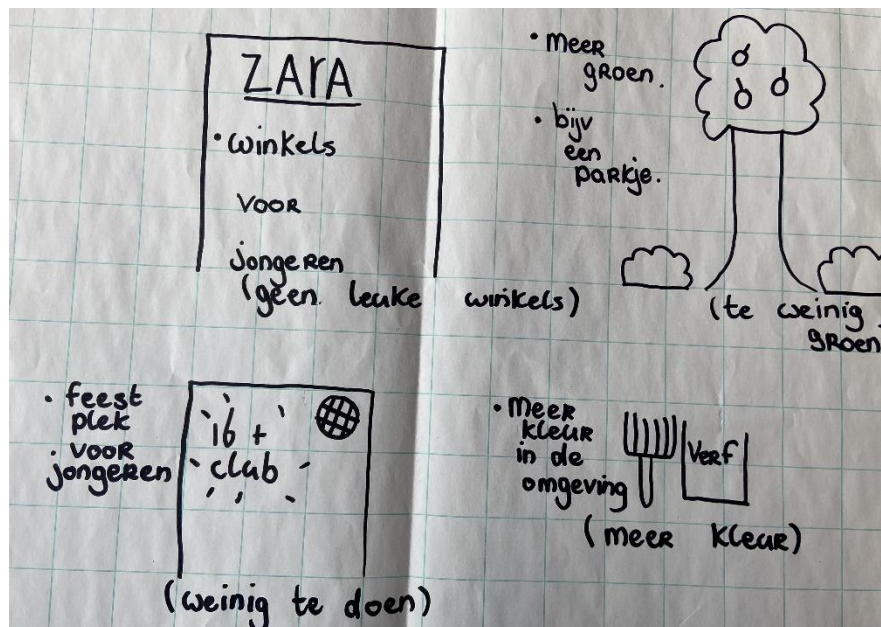 ZARA
• winkels
voor
jongeren
(geen leuke winkels)
• meer
groen.
• bijv
een
parkje.
(te weinig
groen
• feest
plek
voor
jongeren
16+
club
(weinig te doen)
• meer
kleur
in de
omgeving
Verf
(meer kleur)